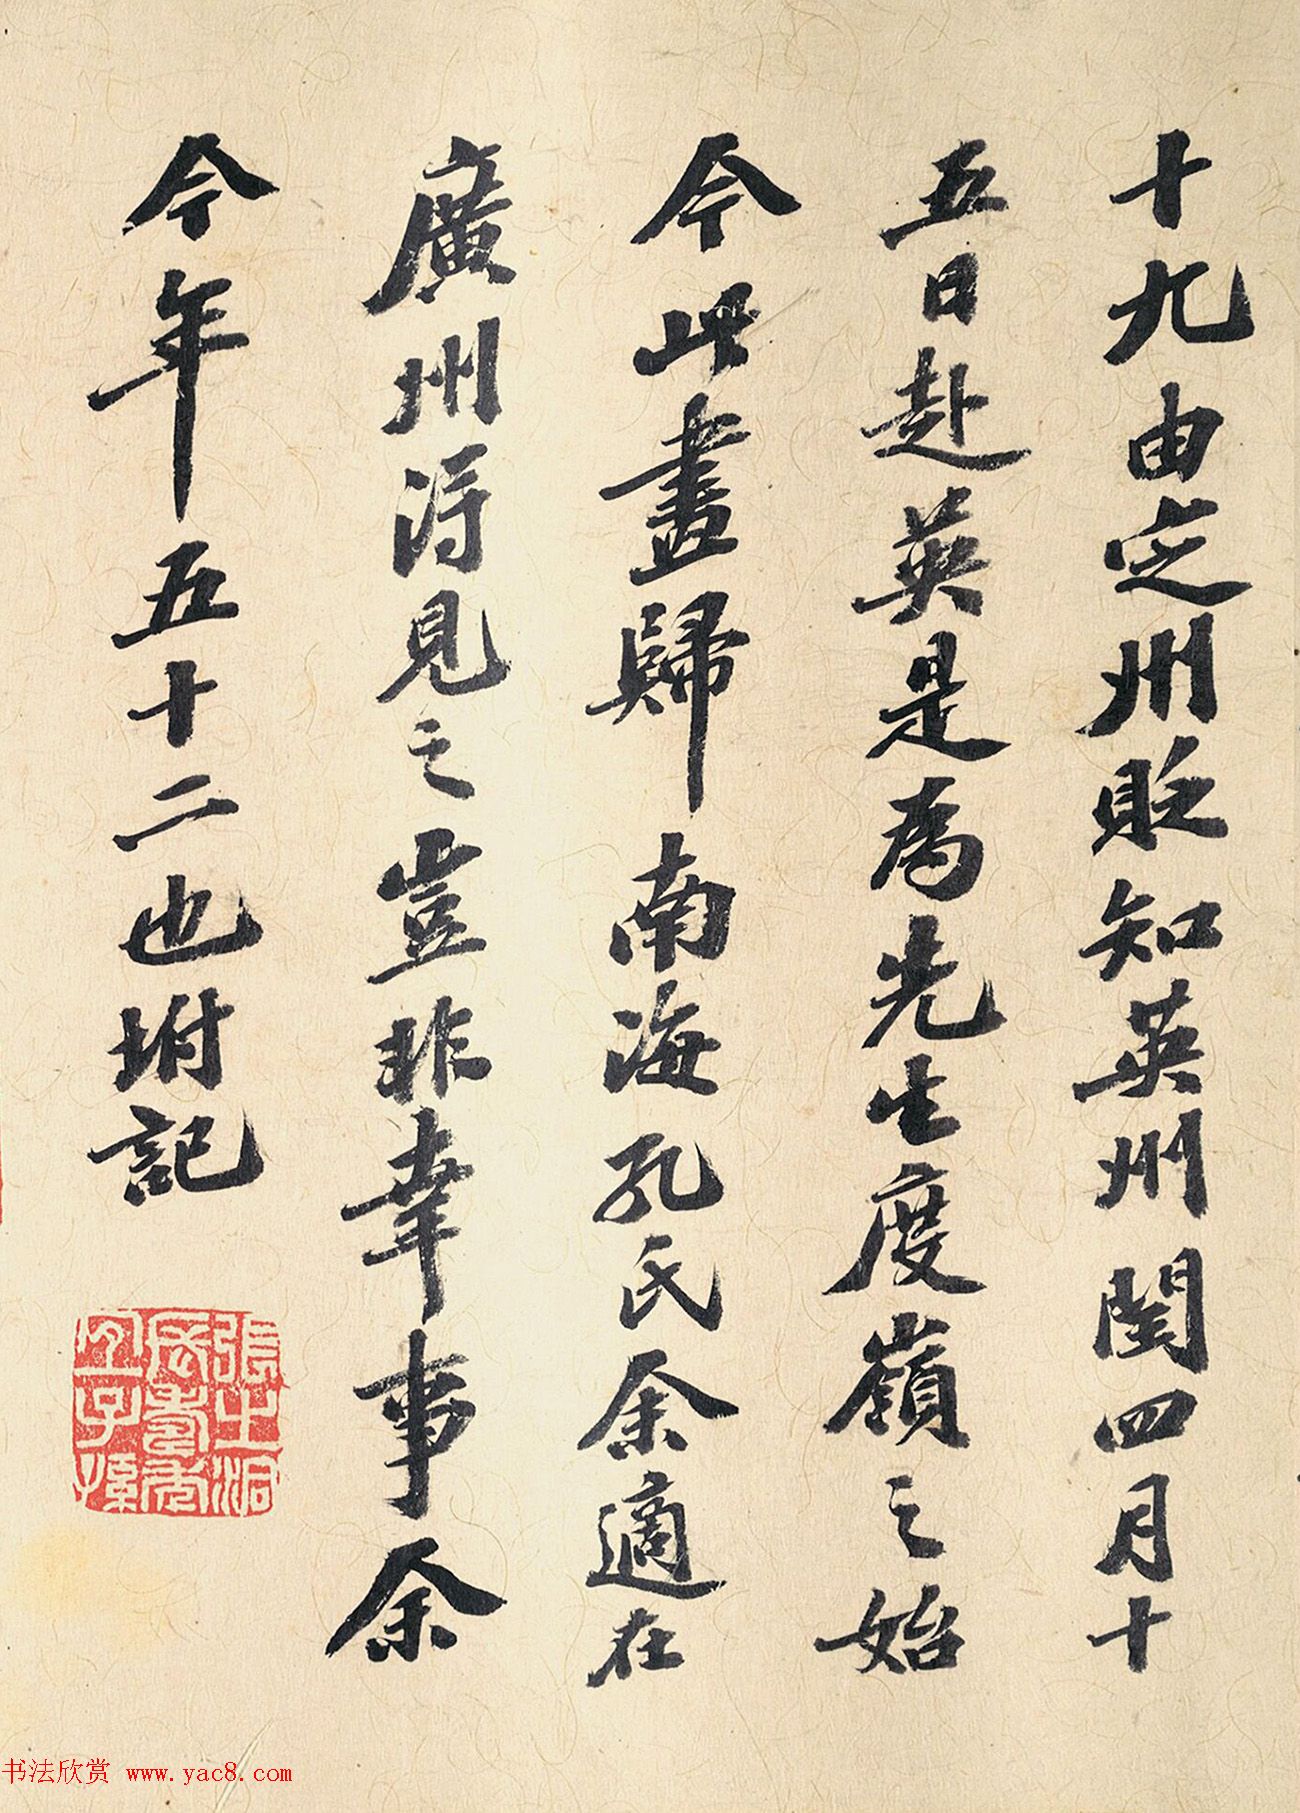 十九由定州貶知英州閏四月十
五日赴英是為先生度嶺之始
今此畫歸南海孔氏余適在
廣州得見之豈非幸事余
今年五十二也坿記
張之洞
壺子孫
书法欣赏 www.yac8.com